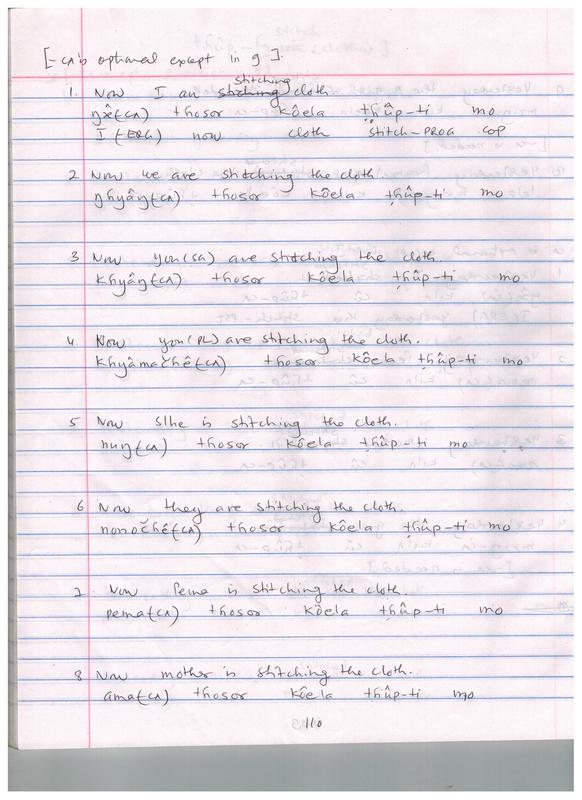 [-cʌ is optional except in 9].
stitching
1. Now I am stitching cloth
ŋʌ̂(cʌ) thosor kôela ṭhûp-ti mo
I (ERG) now cloth stitch-PROG COP
2 Now we are stitching the cloth
ŋhyâŋ(cʌ) thosor kôela ṭhûp-ti mo
3 Now you(SG) are stitching the cloth.
khyâŋ(cʌ) thosor kôela ṭhûp-ti mo
4. Now you(PL) are stitching the cloth.
khyâmačhê(cʌ) thosor kôela ṭhûp-ti mo
5 Now s/he is stitching the cloth.
huŋ(cʌ) thosor kôela ṭhûp-ti mo
6 Now they are stitching the cloth.
nonočhê(cʌ) thosor kôela ṭhûp-ti mo
7. Now Pema is stitching the cloth.
pema(cʌ) thosor kôela ṭhûp-ti mo
8 Now mother is stitching the cloth.
ama(cʌ) thosor kôela ṭhûp-ti mo
110